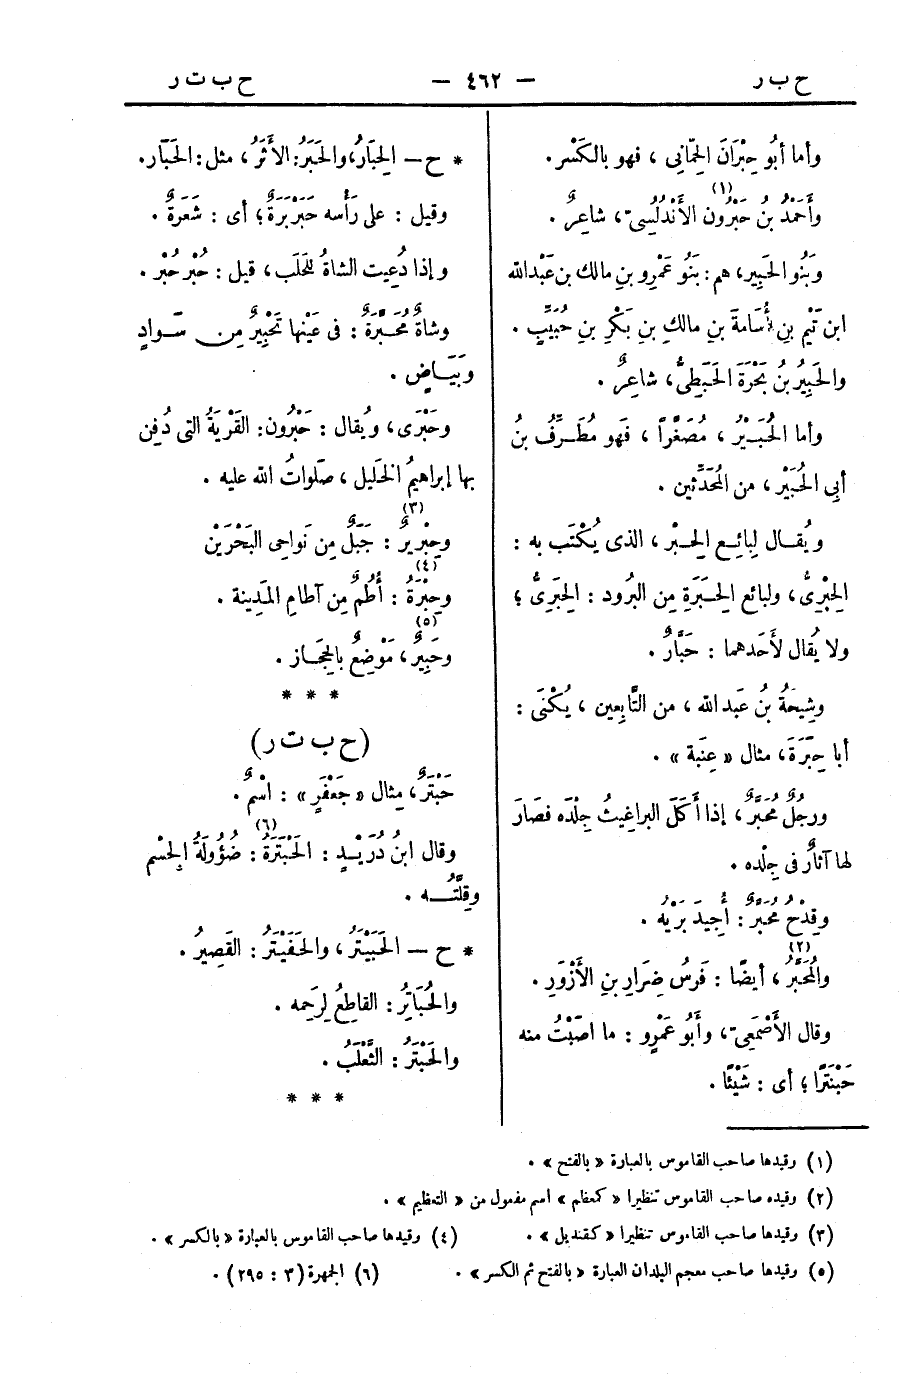 ح ب ر — ٤٦٢ — ح ب ت ر
وأما أبُو حِبْرَانَ الحِمّانِي ، فهو بالكَسْر .
وأَحْمَدُ بنُ حَبْرُون (١) الأَنْدَلُسِيّ ، شاعِرٌ .
وبَنُو الحَبِير ، هم : بَنُو عَمْرِو بنِ مالك بن عَبْد الله
ابن تَيْم بنِ أُسَامَةَ بنِ مالكِ بنِ بَكْرِ بنِ حُبَيِّبٍ .
والحَبِيرُ بنُ بَحْرَةَ الحَبَطِيُّ ، شاعِرٌ .
وأما الحُبَيْرُ ، مُصَغَّراً ، فَهو مُطَرِّفُ بنُ
أبِى الحُبَيْرِ ، من المُحَدِّثين .
ويُقال لِبائِع الحِبْر ، الذى يُكْتَب به :
الحِبْرِىُّ ، ولبائع الحِبَرَةِ مِن البُرود : الحِبَرِىُّ ؛
ولا يُقال لأَحَدهما : حَبَّارٌ .
وشِيحَةُ بنُ عَبد الله ، من التَّابِعين ، يُكْنَى :
أبا حِبَرَةَ ، مثال « عِنَبة » .
ورجُلٌ مُحَبَّرٌ ، إذا أَكَلَ البراغيثُ جِلْدَه فصَارَ
لها آثارٌ فى جِلْده .
وقِدْحٌ مُحَبَّرٌ : أُجِيدَ بَرْيُه .
والمُحَبَّرُ (٢) ، أيضًا : فَرسُ ضِرَارِ بنِ الأَزْوَرِ .
وقال الأَصْمَعِىّ ، وأَبُو عَمْرٍو : ما أصَبْتُ منه
حَبَنْتَرًا ؛ أى : شَيْئًا .
* ح — الحِبَارُ ، والحَبَرُ : الأَثَرُ ، مثل : الحَبَار .
وقيل : على رَأْسه حَبَرْبَرَةٌ ؛ أى : شَعَرَةٌ .
وإذا دُعِيت الشاةُ للحَلَب ، قيل : حُبْر حُبْر .
وشاةٌ مُحَبَّرَةٌ : فى عَيْنها تَحْبِيرٌ مِن سَوادٍ
وبَيَاضٍ .
وحَبْرَى ، ويُقال : حَبْرُون : القَرْيَةُ التى دُفِن
بها إبراهيمُ الخَليل ، صَلواتُ الله عليه .
وحِبْرِيرٌ (٣) : جَبَلٌ مِن نَواحِى البَحْرَيْن
وحِبْرَةُ (٤) : أُطُمٌ مِن آطامِ المَدِينة .
وحَبِيرٌ (٥) ، مَوْضِعٌ بالحِجَاز .
* * *
(ح ب ت ر)
حَبْتَرٌ ، مِثال « جَعْفَرٍ » : اسْمٌ .
وقال ابنُ دُرَيْدٍ : الحَبْتَرَةُ (٦) : ضُؤُولَةُ الجِسْم
وقِلَّتُه .
* ح — الحَبَيْتَرُ ، والحَفَيْتَرُ : القَصِيرُ .
والحُبَاتِرُ : القاطِعُ لِرَحِمه .
والحَبْتَرُ : الثَّعْلَبُ .
* * *
(١) وقيدها صاحب القاموس بالعبارة « بالفتح » .
(٢) وقيده صاحب القاموس تنظيرا « كمعظم » اسم مفعول من « التعظيم » .
(٣) وقيدها صاحب القاموس تنظيرا « كقنديل » . (٤) وقيدها صاحب القاموس بالعبارة « بالكسر » .
(٥) وقيدها صاحب معجم البلدان العبارة « بالفتح ثم الكسر » . (٦) الجمهرة (٣ : ٢٩٥) .